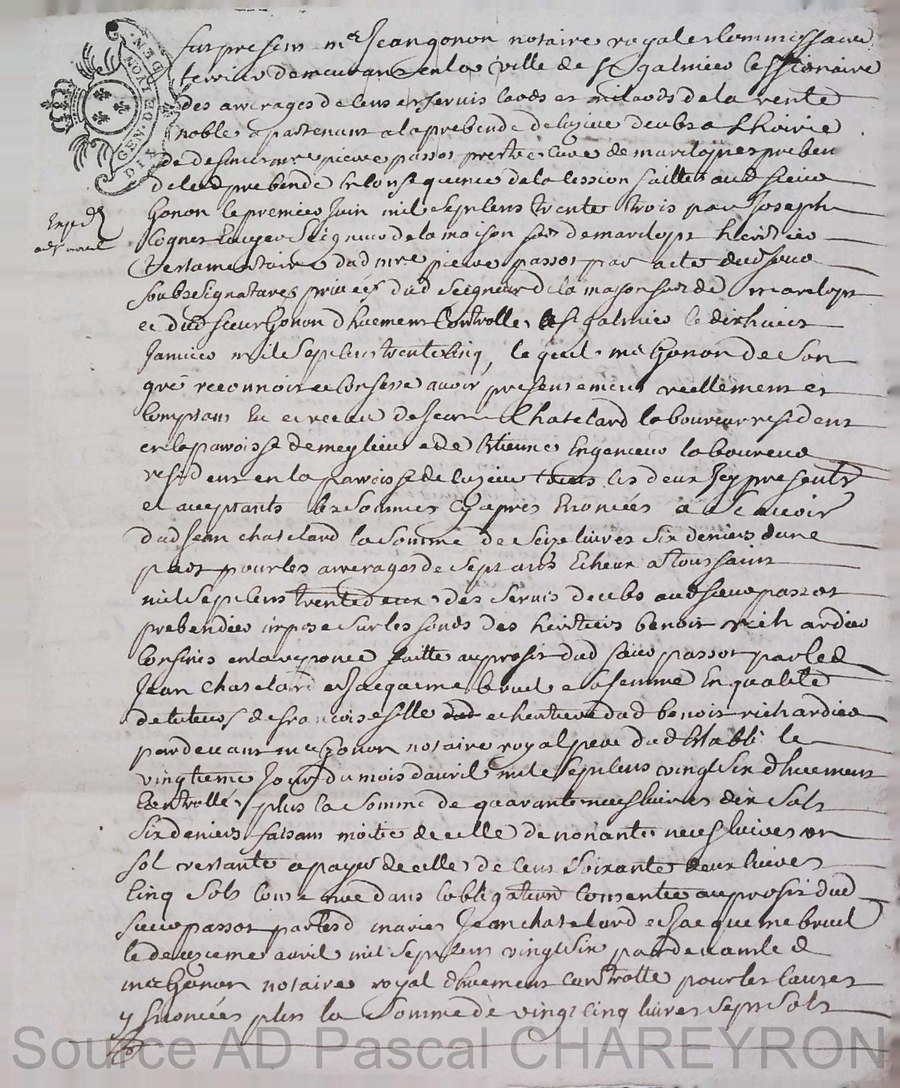 GEN. DE LYON DIX DEN.
fut present me Jean gonon notaire royal et Commissaire
terrier demeurant en la ville de st galmier Cessionaire
des arrerages de Cens et servis laods et milaods de la rente
noble apartenant a la prebende de
de deffunt mre pierre passot prestre Curé de mareloptz preben
de lad prebende en Consequence de la Cession faitte aud sieur
Gonon le premier Juin mil sept Cens trente trois par Joseph
Cognet Ecuyer Seigneur de la maison fort de marelopt heritier
testamentaire dud mre pierre passot par acte
Soubs Signatures privées dud Seigneur de la maison fort de marelopt
et dud sieur Gonon dhuement Controllé a st galmier le dix huict
Janvier mil Sept Cens trente Cinq, le quel me Gonon de Son
gré reconnoit et Confesse avoir presentement reellement et
Comptant Eu et receu de Jean Chatelard laboureur resident
en la paroisse de meylieu et de Etienne laboureur
resident en la paroisse de tous les deux Icy presents
et acceptants les Sommes Cy apres Enoncées a Scavoir
dud Jean chatelard la Somme de Seize livres Six deniers dune
part pour les arrerages de Sept ans Echeux a toussaint
mil Sept Cens trente deux des Servis deubs aud sieur passot
prebendier imposé Sur les fonds des heritiers benoit richardier
Confinés en la reponce faitte au profit dud sieur passot par led
Jean chatelard et Jacquemme bruel Sa femme En qualité
de tuteurs de francoise fille et heritiere dud benoit richardier
pardevant me Gonon notaire royal pere dud Etabli le
vingtieme Jour du mois davril mil Sept Cens vingt Six dhuement
Controllé, plus la Somme de quarante neuf livres dix Sols
Six deniers faisant moitié de Celle de nonante neuf livres un
Sol restante a payer de Celle de Cens Soixante deux livres
Cinq Sols Contenue dans lobligation Consentie au profit dud
sieur passot par lesd mariés Jean chatelard et Jacquemme bruel
le deuxieme avril mil Sept Cens vingt Six pardevant led
me Gonon notaire royal dhuement Controllé pour les Causes
y Enoncées plus la Somme de vingt Cinq livres Sept Sols
Source AD Pascal CHAREYRON